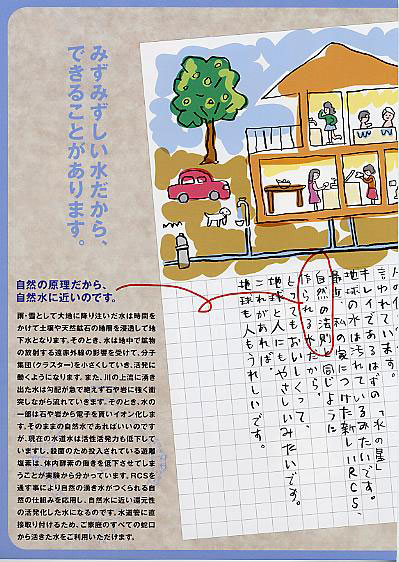 みずみずしい水だから、
できることがあります。
自然の原理だから、
自然水に近いのです。
雨・雪として大地に降り注いだ水は時間を
かけて土壌や天然鉱石の地層を浸透して地
下水となります。そのとき、水は地中で鉱物
の放射する遠赤外線の影響を受けて、分子
集団(クラスター)を小さくしていき、活発に
動くようになります。また、川の上流に湧き
出た水は勾配が急で絶えず石や岩に強く衝
突しながら流れていきます。そのとき、水の
一部は石や岩から電子を貰いイオン化しま
す。そのままの自然水であればいいのです
が、現在の水道水は活性活発力も低下して
いますし、殺菌のため投入されている遊離
塩素は、体内酵素の働きを低下させてしま
うことが実験から分かっています。RCSを
通す事により自然の湧き水がつくられる自
然の仕組みを応用し、自然水に近い還元性
の活発化した水になるのです。水道管に直
接取り付けるため、ご家庭のすべての蛇口
から活きた水をご利用いただけます。
言われています。「水の星」
キレイであるはずの
地球の水は汚れているみたいです。
最近、私の家につけた新しいRCS、
自然の法則と同じように
作られる水だから、
とってもおいしくって、
地球と人にもやさしいみたいです。
これがあれば、
地球も人もうれしいです。